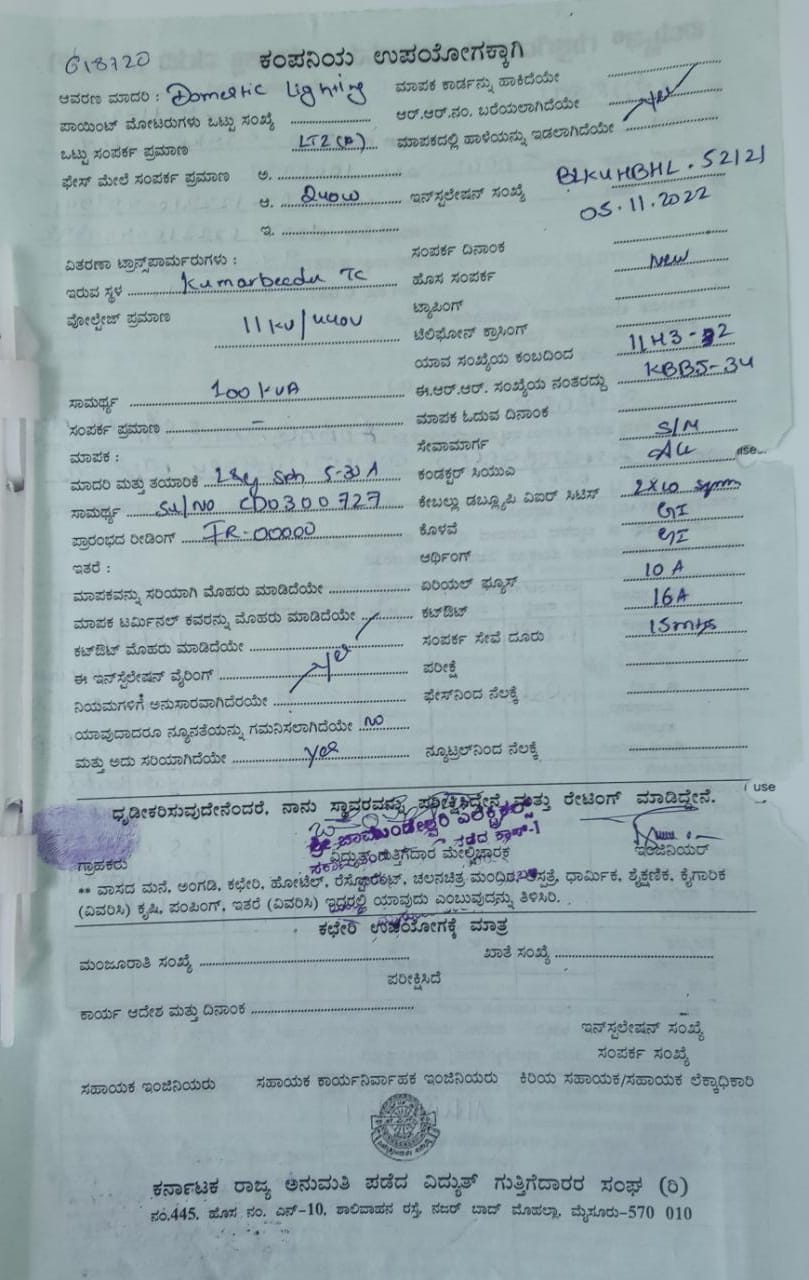 G18720
ಕಂಪನಿಯ ಉಪಯೋಗಕ್ಕಾಗಿ
ಆವರಣ ಮಾದರಿ : Domestic Lighting
ಮಾಪಕ ಕಾರ್ಡನ್ನು ಹಾಕಿದೆಯೇ
ಪಾಯಿಂಟ್ ಮೋಟರುಗಳು ಒಟ್ಟು ಸಂಖ್ಯೆ
ಆರ್.ಆರ್.ನಂ. ಬರೆಯಲಾಗಿದೆಯೇ
ಒಟ್ಟು ಸಂಪರ್ಕ ಪ್ರಮಾಣ LT2(a)
ಮಾಪಕದಲ್ಲಿ ಹಾಳೆಯನ್ನು ಇಡಲಾಗಿದೆಯೇ yes
ಫೇಸ್ ಮೇಲೆ ಸಂಪರ್ಕ ಪ್ರಮಾಣ ಅ.
ಆ. 240W
ಇನ್‌ಸ್ಟಲೇಷನ್ ಸಂಖ್ಯೆ BLKUHBHL.52121
05.11.2022
ಇ.
ವಿತರಣಾ ಟ್ರಾನ್ಸ್‌ಪಾರ್ಮರುಗಳು :
ಸಂಪರ್ಕ ದಿನಾಂಕ
ಇರುವ ಸ್ಥಳ Kumarbeedu TC
ಹೊಸ ಸಂಪರ್ಕ New
ವೋಲ್ಟೇಜ್ ಪ್ರಮಾಣ 11KV/440V
ಟ್ಯಾಪಿಂಗ್
ಟೆಲಿಫೋನ್ ಕ್ರಾಸಿಂಗ್
ಯಾವ ಸಂಖ್ಯೆಯ ಕಂಬದಿಂದ
ಸಾಮರ್ಥ್ಯ 100 KVA
ಈ.ಆರ್.ಆರ್. ಸಂಖ್ಯೆಯ ನಂತರದ್ದು KBBJ-34
ಸಂಪರ್ಕ ಪ್ರಮಾಣ -
ಮಾಪಕ ಓದುವ ದಿನಾಂಕ
ಮಾಪಕ :
ಸೇವಾಮಾರ್ಗ S/M
ಮಾದರಿ ಮತ್ತು ತಯಾರಿಕೆ L&G Sph 5-30A
ಕಂಡಕ್ಟರ್ ಸಿಯುಎ
ಸಾಮರ್ಥ್ಯ Sl/No CD0300727
ಕೇಬಲ್ಲು ಡಬ್ಲ್ಯೂಪಿ ವಿಐರ್ ಸಿಟಿಸ್ 2x10 sqmm
ಪ್ರಾರಂಭದ ರೀಡಿಂಗ್ IR-00000
ಕೊಳವೆ GI
ಇತರೆ :
ಆರ್ಥಿಂಗ್ GI
ಮಾಪಕವನ್ನು ಸರಿಯಾಗಿ ಮೊಹರು ಮಾಡಿದೆಯೇ
ಏರಿಯಲ್ ಫ್ಯೂಸ್ 10 A
ಮಾಪಕ ಟರ್ಮಿನಲ್ ಕವರನ್ನು ಮೊಹರು ಮಾಡಿದೆಯೇ
ಕಟ್‌ಔಟ್ 16A
ಕಟ್‌ಔಟ್ ಮೊಹರು ಮಾಡಿದೆಯೇ
ಸಂಪರ್ಕ ಸೇವೆ ದೂರು 15mtrs
ಈ ಇನ್‌ಸ್ಟಲೇಷನ್ ವೈರಿಂಗ್ yes
ಪರೀಕ್ಷೆ
ನಿಯಮಗಳಿಗೆ ಅನುಸಾರವಾಗಿದೆಯೇ
ಫೇಸ್‌ನಿಂದ ನೆಲಕ್ಕೆ
ಯಾವುದಾದರೂ ನ್ಯೂನತೆಯನ್ನು ಗಮನಿಸಲಾಗಿದೆಯೇ no
ಮತ್ತು ಅದು ಸರಿಯಾಗಿದೆಯೇ yes
ನ್ಯೂಟ್ರಲ್‌ನಿಂದ ನೆಲಕ್ಕೆ
use
ಧೃಡೀಕರಿಸುವುದೇನೆಂದರೆ, ನಾನು ಸ್ಥಾವರವನ್ನು ಪರೀಕ್ಷಿಸಿದ್ದೇನೆ ಮತ್ತು ರೇಟಿಂಗ್ ಮಾಡಿದ್ದೇನೆ.
ಶ್ರೀ ಚಾಮುಂಡೇಶ್ವರಿ ಎಲೆಕ್ಟ್ರಿಕಲ್ಸ್
ಗ್ರಾಹಕರು
ವಿದ್ಯುತ್ ಗುತ್ತಿಗೆದಾರ ಮೇಲ್ವಿಚಾರಕ
ಇಂಜಿನಿಯರ್
** ವಾಸದ ಮನೆ, ಅಂಗಡಿ, ಕಛೇರಿ, ಹೋಟೆಲ್, ರೆಸ್ಟೋರೆಂಟ್, ಚಲನಚಿತ್ರ ಮಂದಿರ, ಆಸ್ಪತ್ರೆ, ಧಾರ್ಮಿಕ, ಶೈಕ್ಷಣಿಕ, ಕೈಗಾರಿಕ
(ವಿವರಿಸಿ) ಕೃಷಿ, ಪಂಪಿಂಗ್, ಇತರೆ (ವಿವರಿಸಿ) ಇದರಲ್ಲಿ ಯಾವುದು ಎಂಬುವುದನ್ನು ತಿಳಿಸಿರಿ.
ಕಛೇರಿ ಉಪಯೋಗಕ್ಕೆ ಮಾತ್ರ
ಮಂಜೂರಾತಿ ಸಂಖ್ಯೆ
ಖಾತೆ ಸಂಖ್ಯೆ
ಪರೀಕ್ಷಿಸಿದೆ
ಕಾರ್ಯ ಆದೇಶ ಮತ್ತು ದಿನಾಂಕ
ಇನ್‌ಸ್ಟಲೇಷನ್ ಸಂಖ್ಯೆ
ಸಂಪರ್ಕ ಸಂಖ್ಯೆ
ಸಹಾಯಕ ಇಂಜಿನಿಯರು ಸಹಾಯಕ ಕಾರ್ಯನಿರ್ವಾಹಕ ಇಂಜಿನಿಯರು ಕಿರಿಯ ಸಹಾಯಕ/ಸಹಾಯಕ ಲೆಕ್ಕಾಧಿಕಾರಿ
ಕರ್ನಾಟಕ ರಾಜ್ಯ ಅನುಮತಿ ಪಡೆದ ವಿದ್ಯುತ್ ಗುತ್ತಿಗೆದಾರರ ಸಂಘ (ರಿ)
ನಂ.445, ಹೊಸ ನಂ. ಎನ್-10, ಶಾಲಿವಾಹನ ರಸ್ತೆ, ನಜರ್ ಬಾದ್ ಮೊಹಲ್ಲಾ, ಮೈಸೂರು-570 010